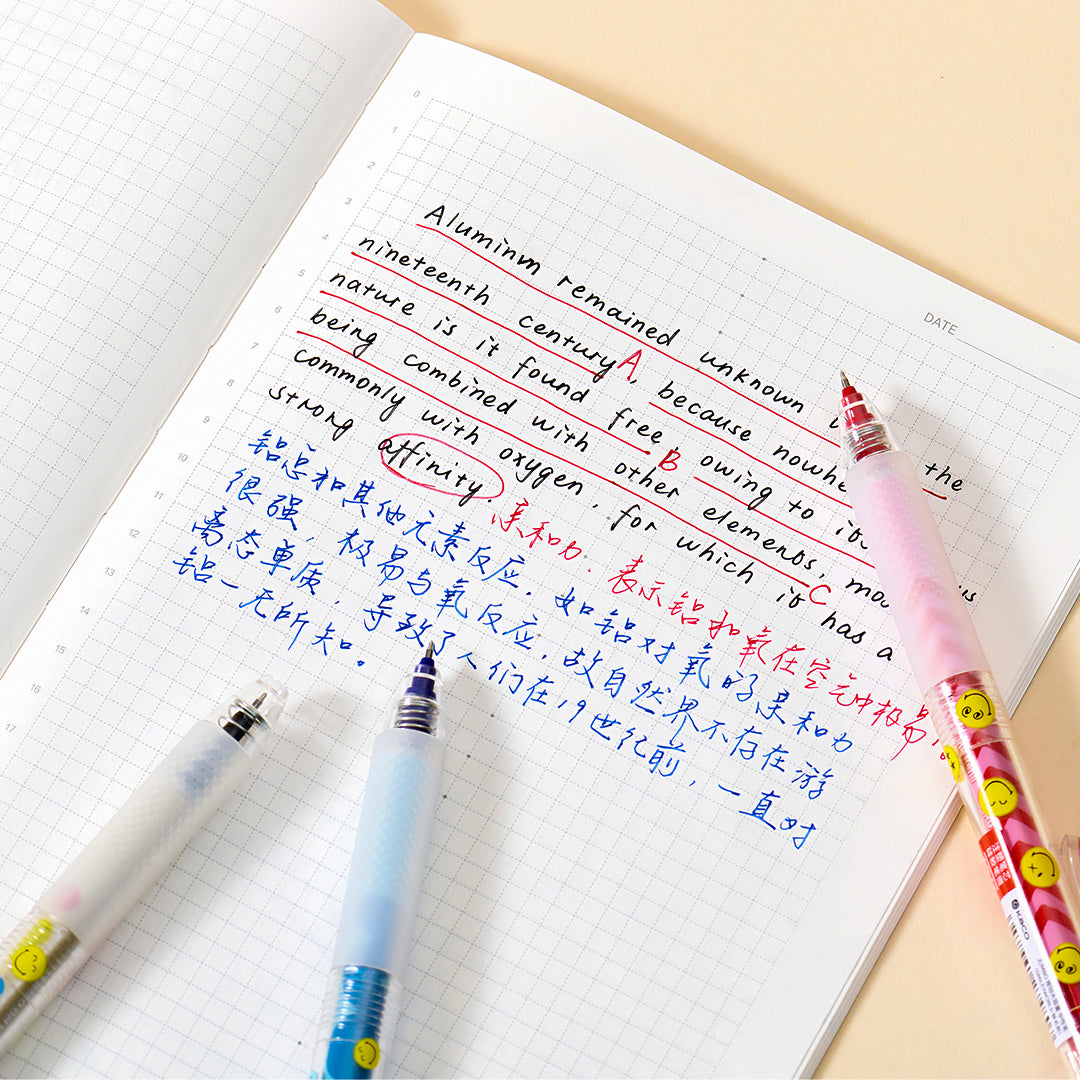 DATE
0
1
2
3
4
5
6
7
8
9
10
11
12
13
14
15
16
17
Aluminum remained unknown the
nineteenth century A, because
nature is it found free B owing to its
being combined with other elements, C is
commonly with oxygen, for which it has a
strong affinity 亲和力: 表示铝和氧在空气中极易
铝总和其他元素反应. 如铝对氧的亲和力
很强, 极易与氧反应, 故自然界不存在游
离态单质, 导致了人们在19世纪前, 一直对
铝一无所知。
KACO